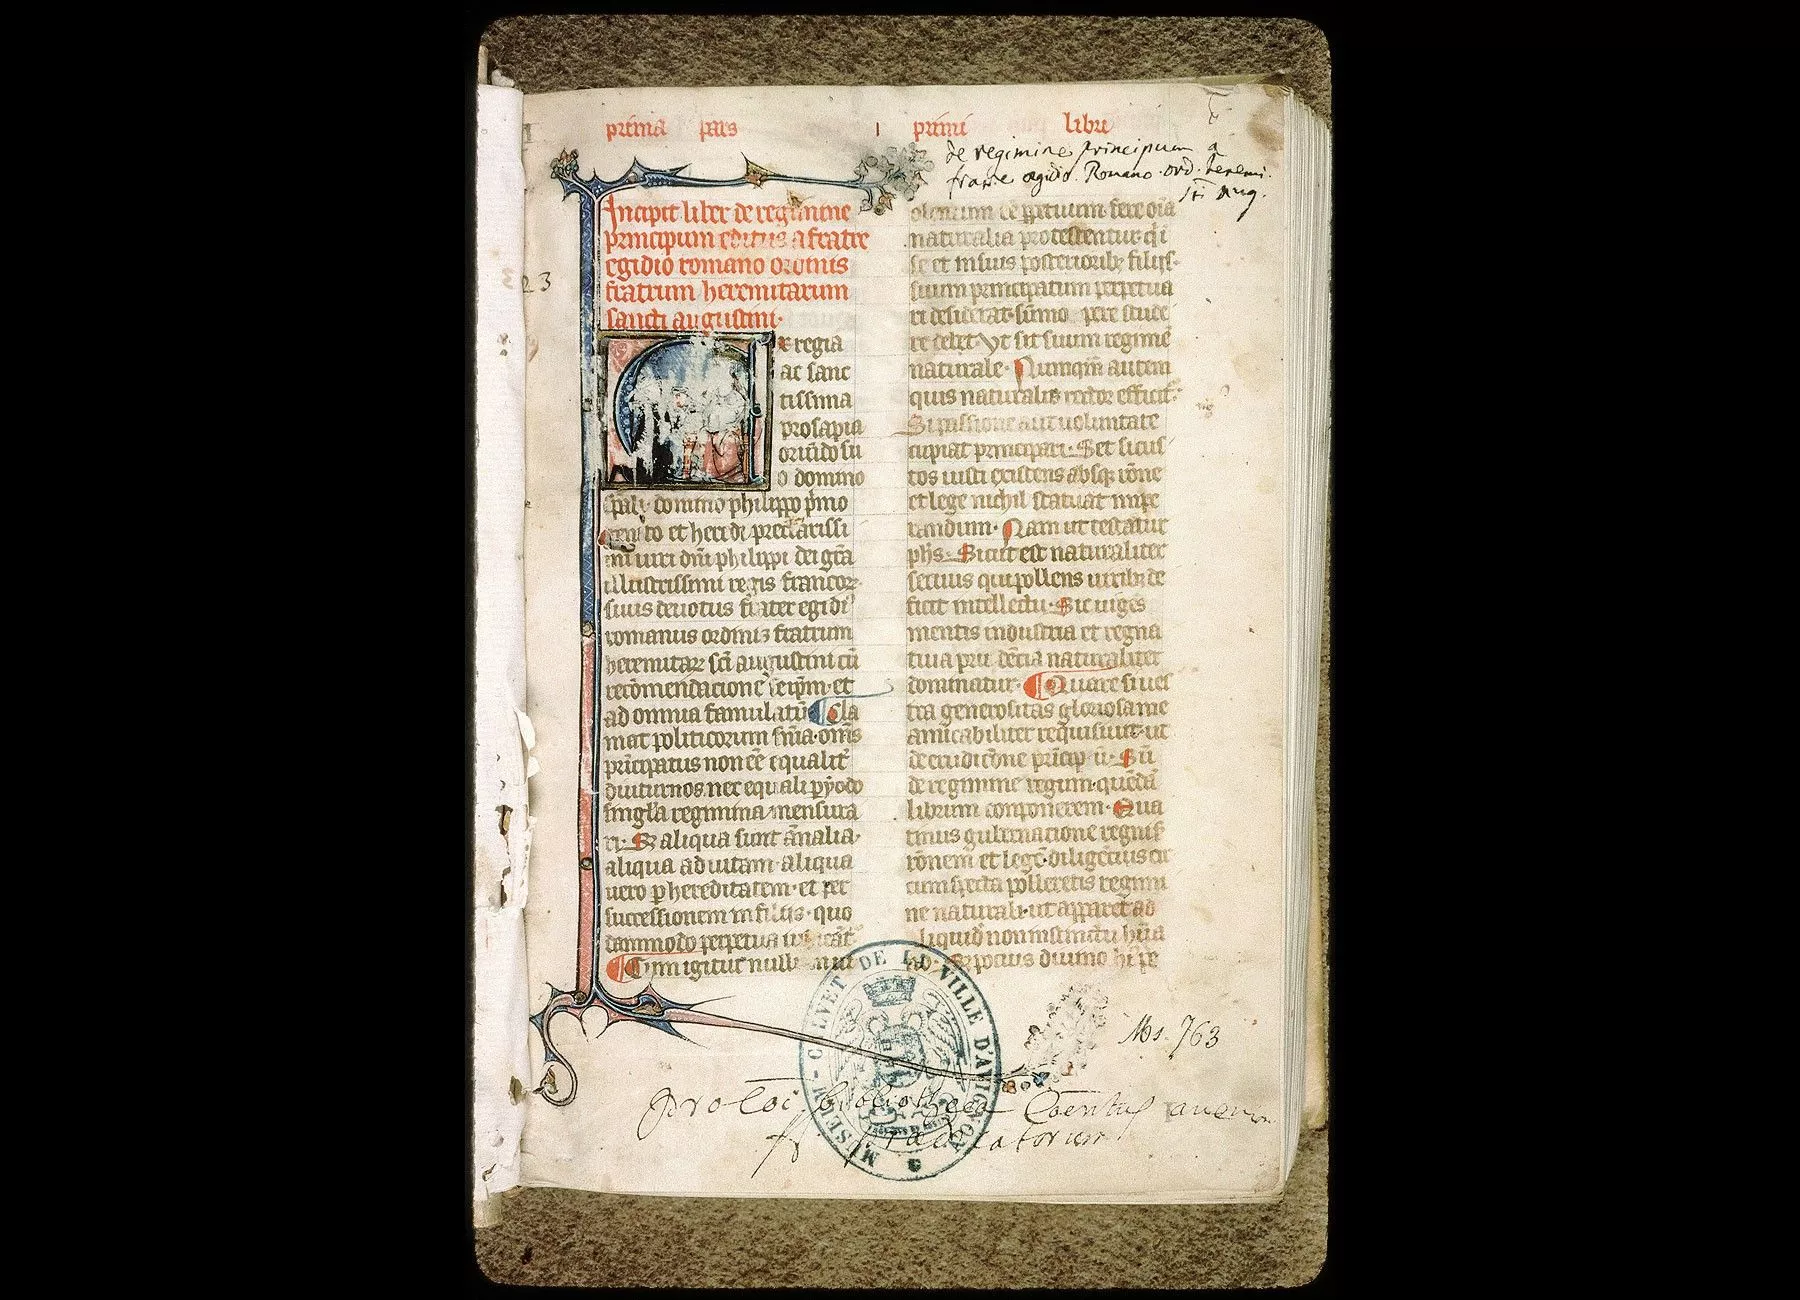 prima pars primi libri
de regimine principum a
fratre ægidio Romano ord. heremi.
sti Aug.
23
Incipit liber de regimine
principum editus a fratre
egidio romano ordinis
fratrum heremitarum
sancti augustini.
Ex regia
ac sanc
tissima
prosapia
oriūdo su
o domino
spāli. domino philippo pͥmo
genito et heredi preclarissi
mi uiri dn̄i philippi dei gr̄a
illustrissimi regis francoꝝ
suus deuotus frater egidiꝰ
romanus ordinis fratrum
heremitaꝝ sc̄i augustini cū
recōmendacione seip̄m et
ad omnia famulatū Cla
mat politicorum sn̄ia. om̄s
prīcipatus non eē equalit̄
diuturnos nec equali pyodo
singl̄a regimina mensura
ri. Sꝫ aliqua sunt ān̄alia.
aliqua ad uitam. aliqua
uero ꝑ hereditatem. et per
successionem in filijs. quo
dammodo perpetua iudicāt̄
Cum igitur nullum ui
olentum ēē ꝑpetuum fere oīa
naturalia protestentur. qͥ
se et in suis posterioribꝫ filijs.
suum principatum perpetua
ri desiderat. sūmo pere stude
re debet vt sit suum regimē
naturale. Numqm̄ autem
quis naturalis rector efficit̄.
Si passione aut uoluntate
cupiat principari. Set si cus
tos iusti existens absqꝫ rōne
et lege nichil statuat impe
randum. Nam ut testatur
ph̄s. Sicut est naturaliter
seruus qui pollens uiribꝫ de
ficit intellectu. Sic uigēs
mentis industria et regna
tiua prudēcia naturaliter
dominatur. Quare si ues
tra generositas gloriosa me
amicabiliter requisiuit. ut
de erudicōne prīcipū. siū
de regimine regum. quēdā
librum componerem. Qua
tinus gubernacione regnis
rōnem et legē. diligēcius cir
cumspecta polleretis regimi
ne naturali. ut apparet ad
liquid non instinctu hūa
no. Sꝫ pocius diuino hūꝰ re
MUSEUM-CALVET DE LA VILLE D'AVIGNON
Ms. 763
pro coi bibliotheca Conventus avenion.
fr. prædicatorum